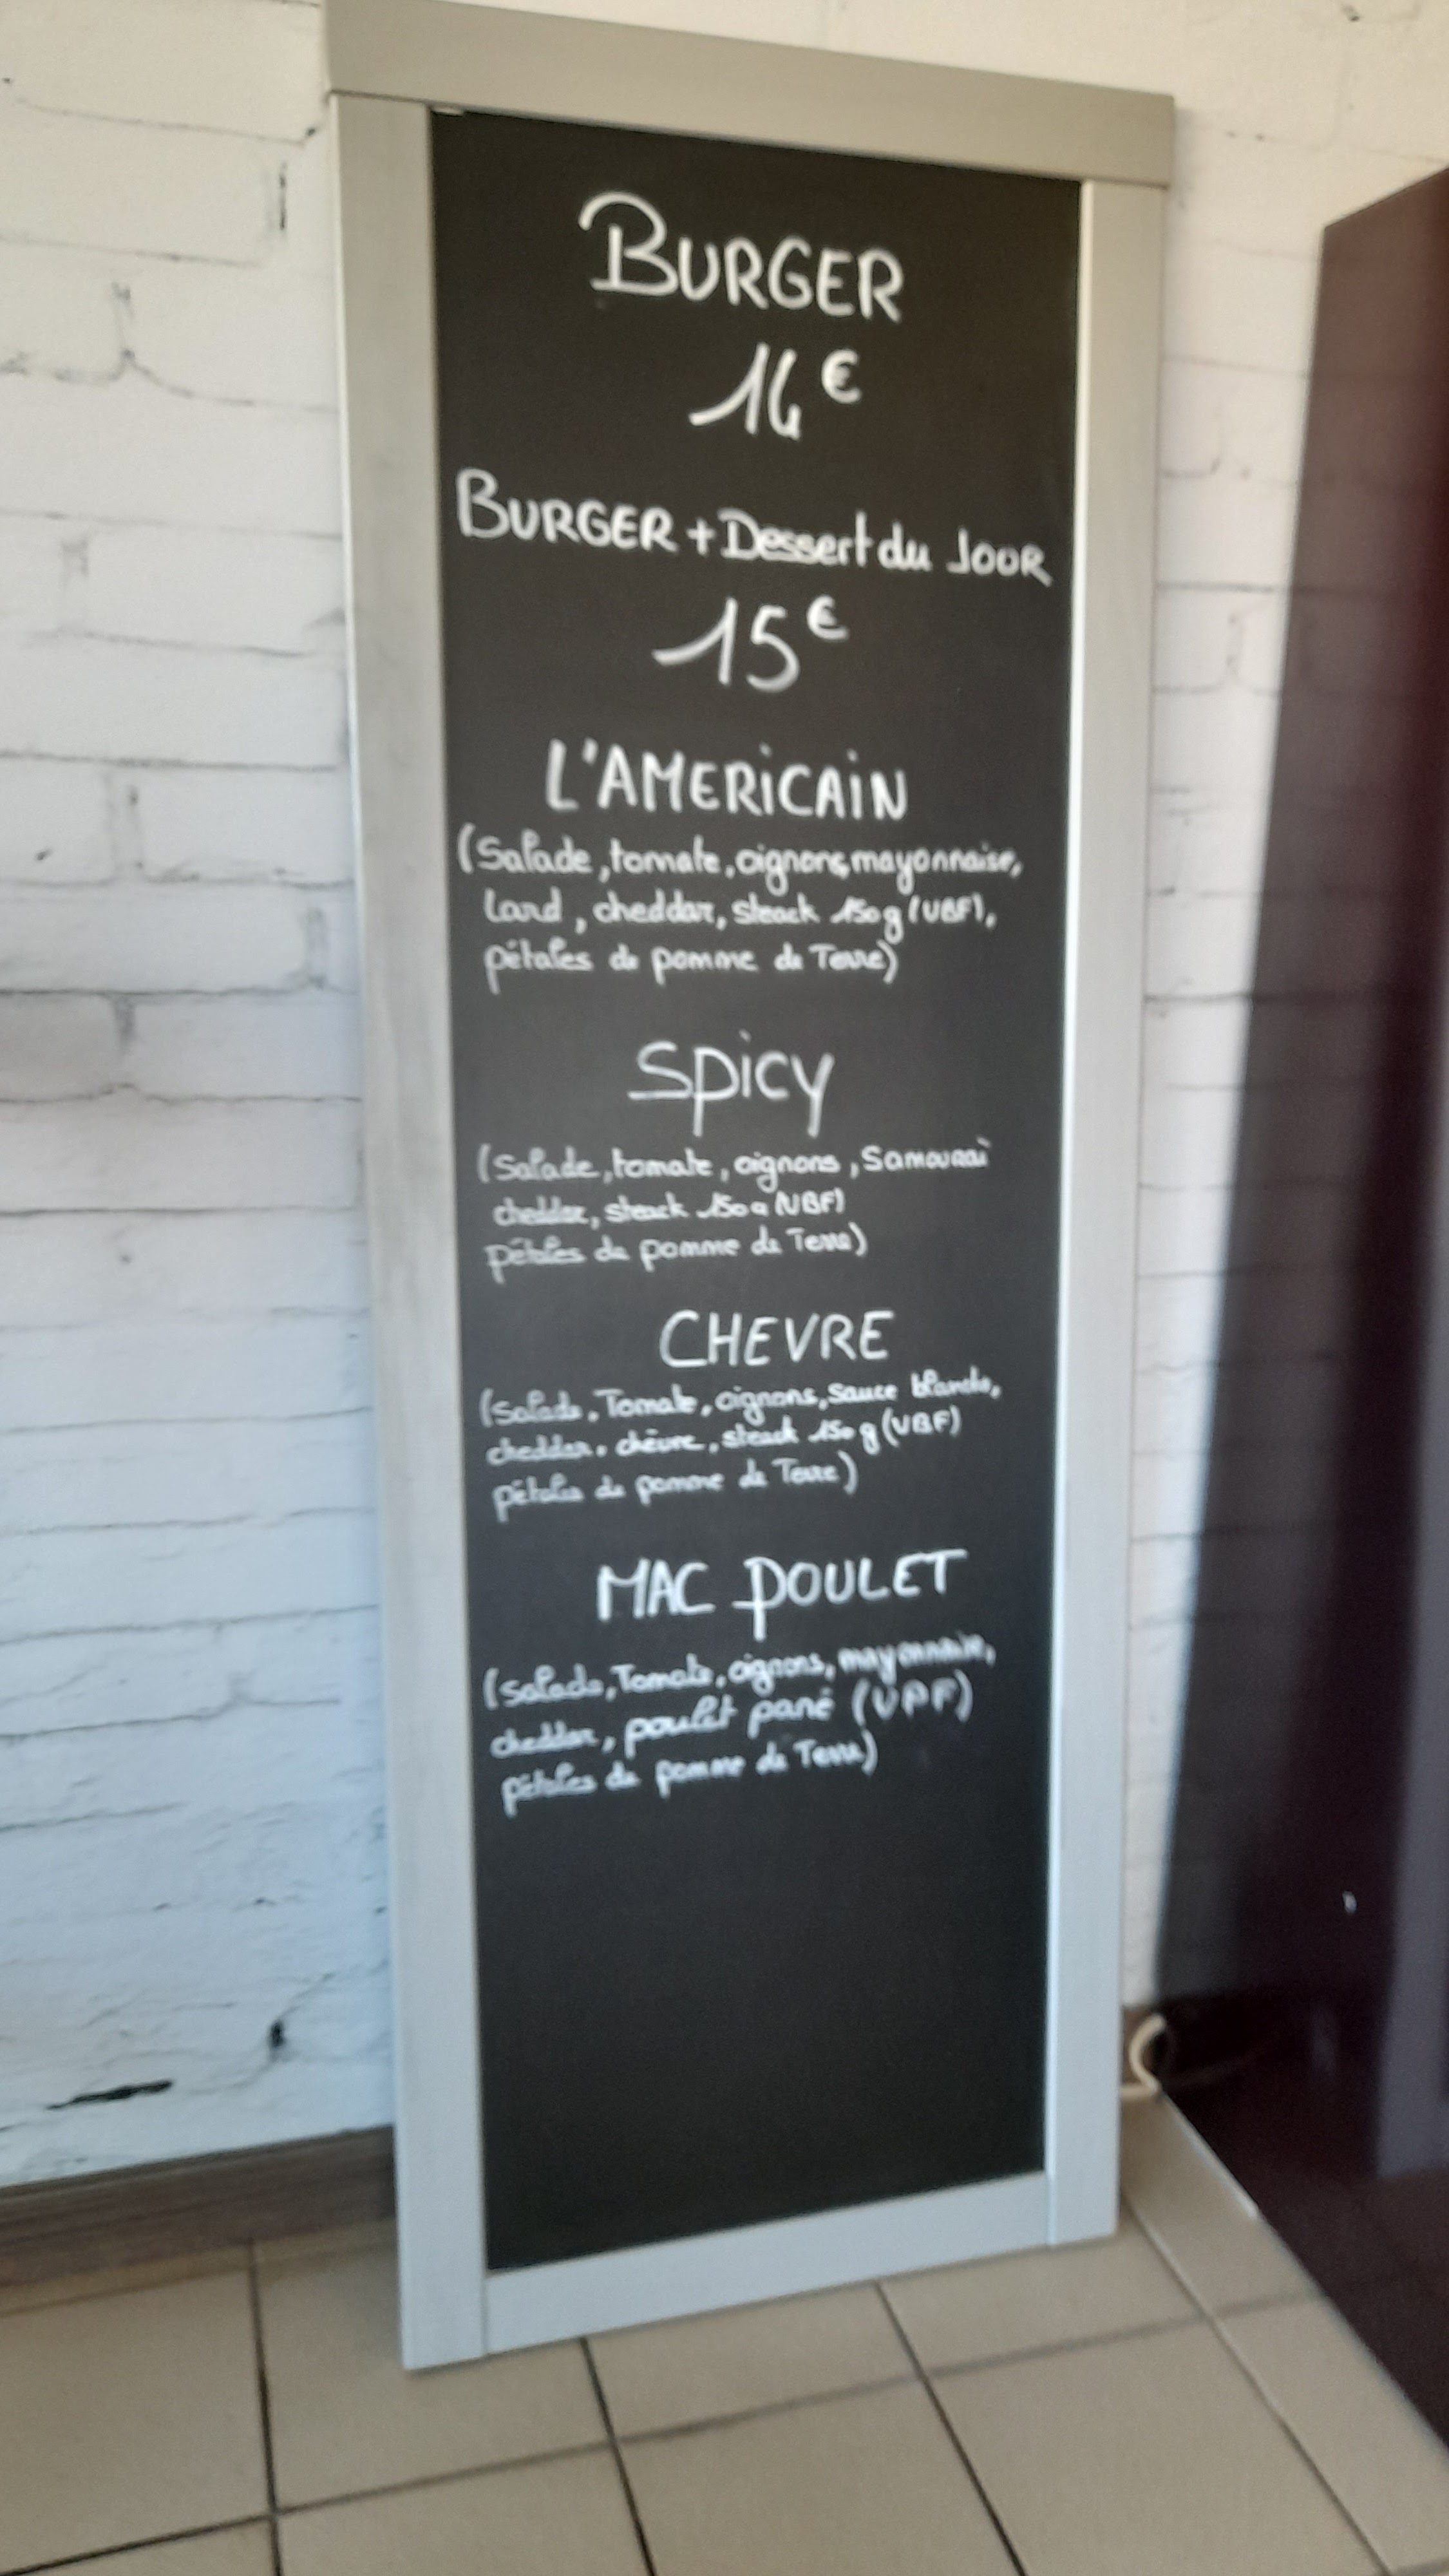 BURGER
14€
BURGER + Dessert du JOUR
15€
L'AMERiCAiN
(Salade, tomate, oignons, mayonnaise,
lard, cheddar, steack 150g (VBF),
pétales de pomme de Terre)
SpicY
(Salade, tomate, oignons, Samouraï
cheddar, steack 150g (VBF)
pétales de pomme de Terre)
CHEVRE
(Salade, Tomate, oignons, sauce blanche,
cheddar, chèvre, steack 150g (VBF)
pétales de pomme de Terre)
MAC POULET
(Salade, Tomate, oignons, mayonnaise,
cheddar, poulet pané (VPF)
pétales de pomme de Terre)